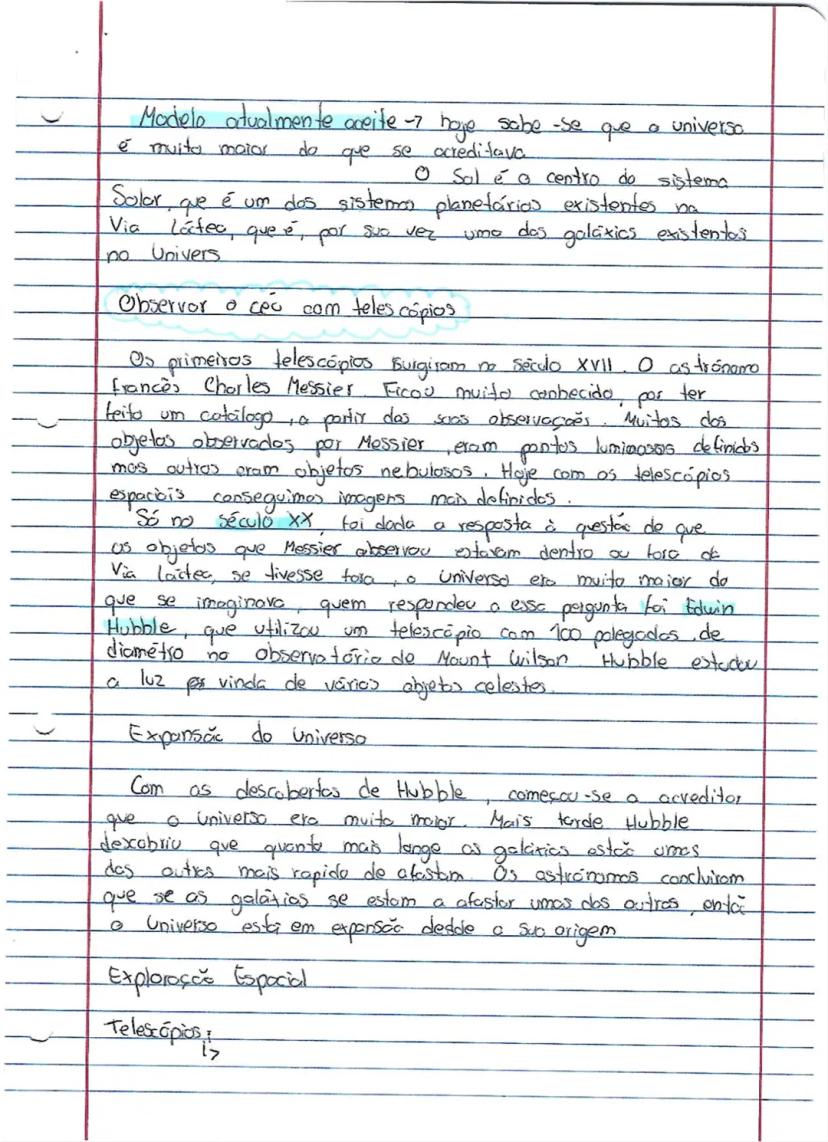 Modelo atualmente aceite → hoje sabe-se que o universo
é muito maior do que se acreditava
O Sol é o centro do sistema
Solar, que é um dos sistemas planetários existentes na
Via Láctea, que é, por sua vez uma das galáxias existentes
no Univers
Observar o céu com telescópios
Os primeiros telescópios surgiram no século XVII. O astrónomo
francês Charles Messier. Ficou muito conhecido, por ter
feito um catálogo, a partir das suas observações. Muitos dos
objetos observados por Messier, eram pontos luminosos definidos
mas outros eram objetos nebulosos. Hoje com os telescópios
espaciais conseguimos imagens mais definidas.
Só no século XX, foi dada a resposta à questão de que
os objetos que Messier observou estavam dentro ou fora da
Via láctea, se tivesse fora, o universo era muito maior do
que se imaginava, quem respondeu a essa pergunta foi Edwin
Hubble, que utilizou um telescópio com 100 polegadas de
diamétro no observatório de Mount Wilson. Hubble estudou
a luz vinda de vários objetos celestes.
Expansão do Universo
Com as descobertas de Hubble, começou-se a acreditar
que o universo era muito maior. Mais tarde Hubble
descobriu que quanto mais longe as galáxias estão umas
das outras mais rapido de afastam. Os astrónomos concluiram
que se as galáxias se estam a afastar umas das outras, então
o Universo está em expansão dedde a sua origem
Exploração Espacial
Telescópios:
↳